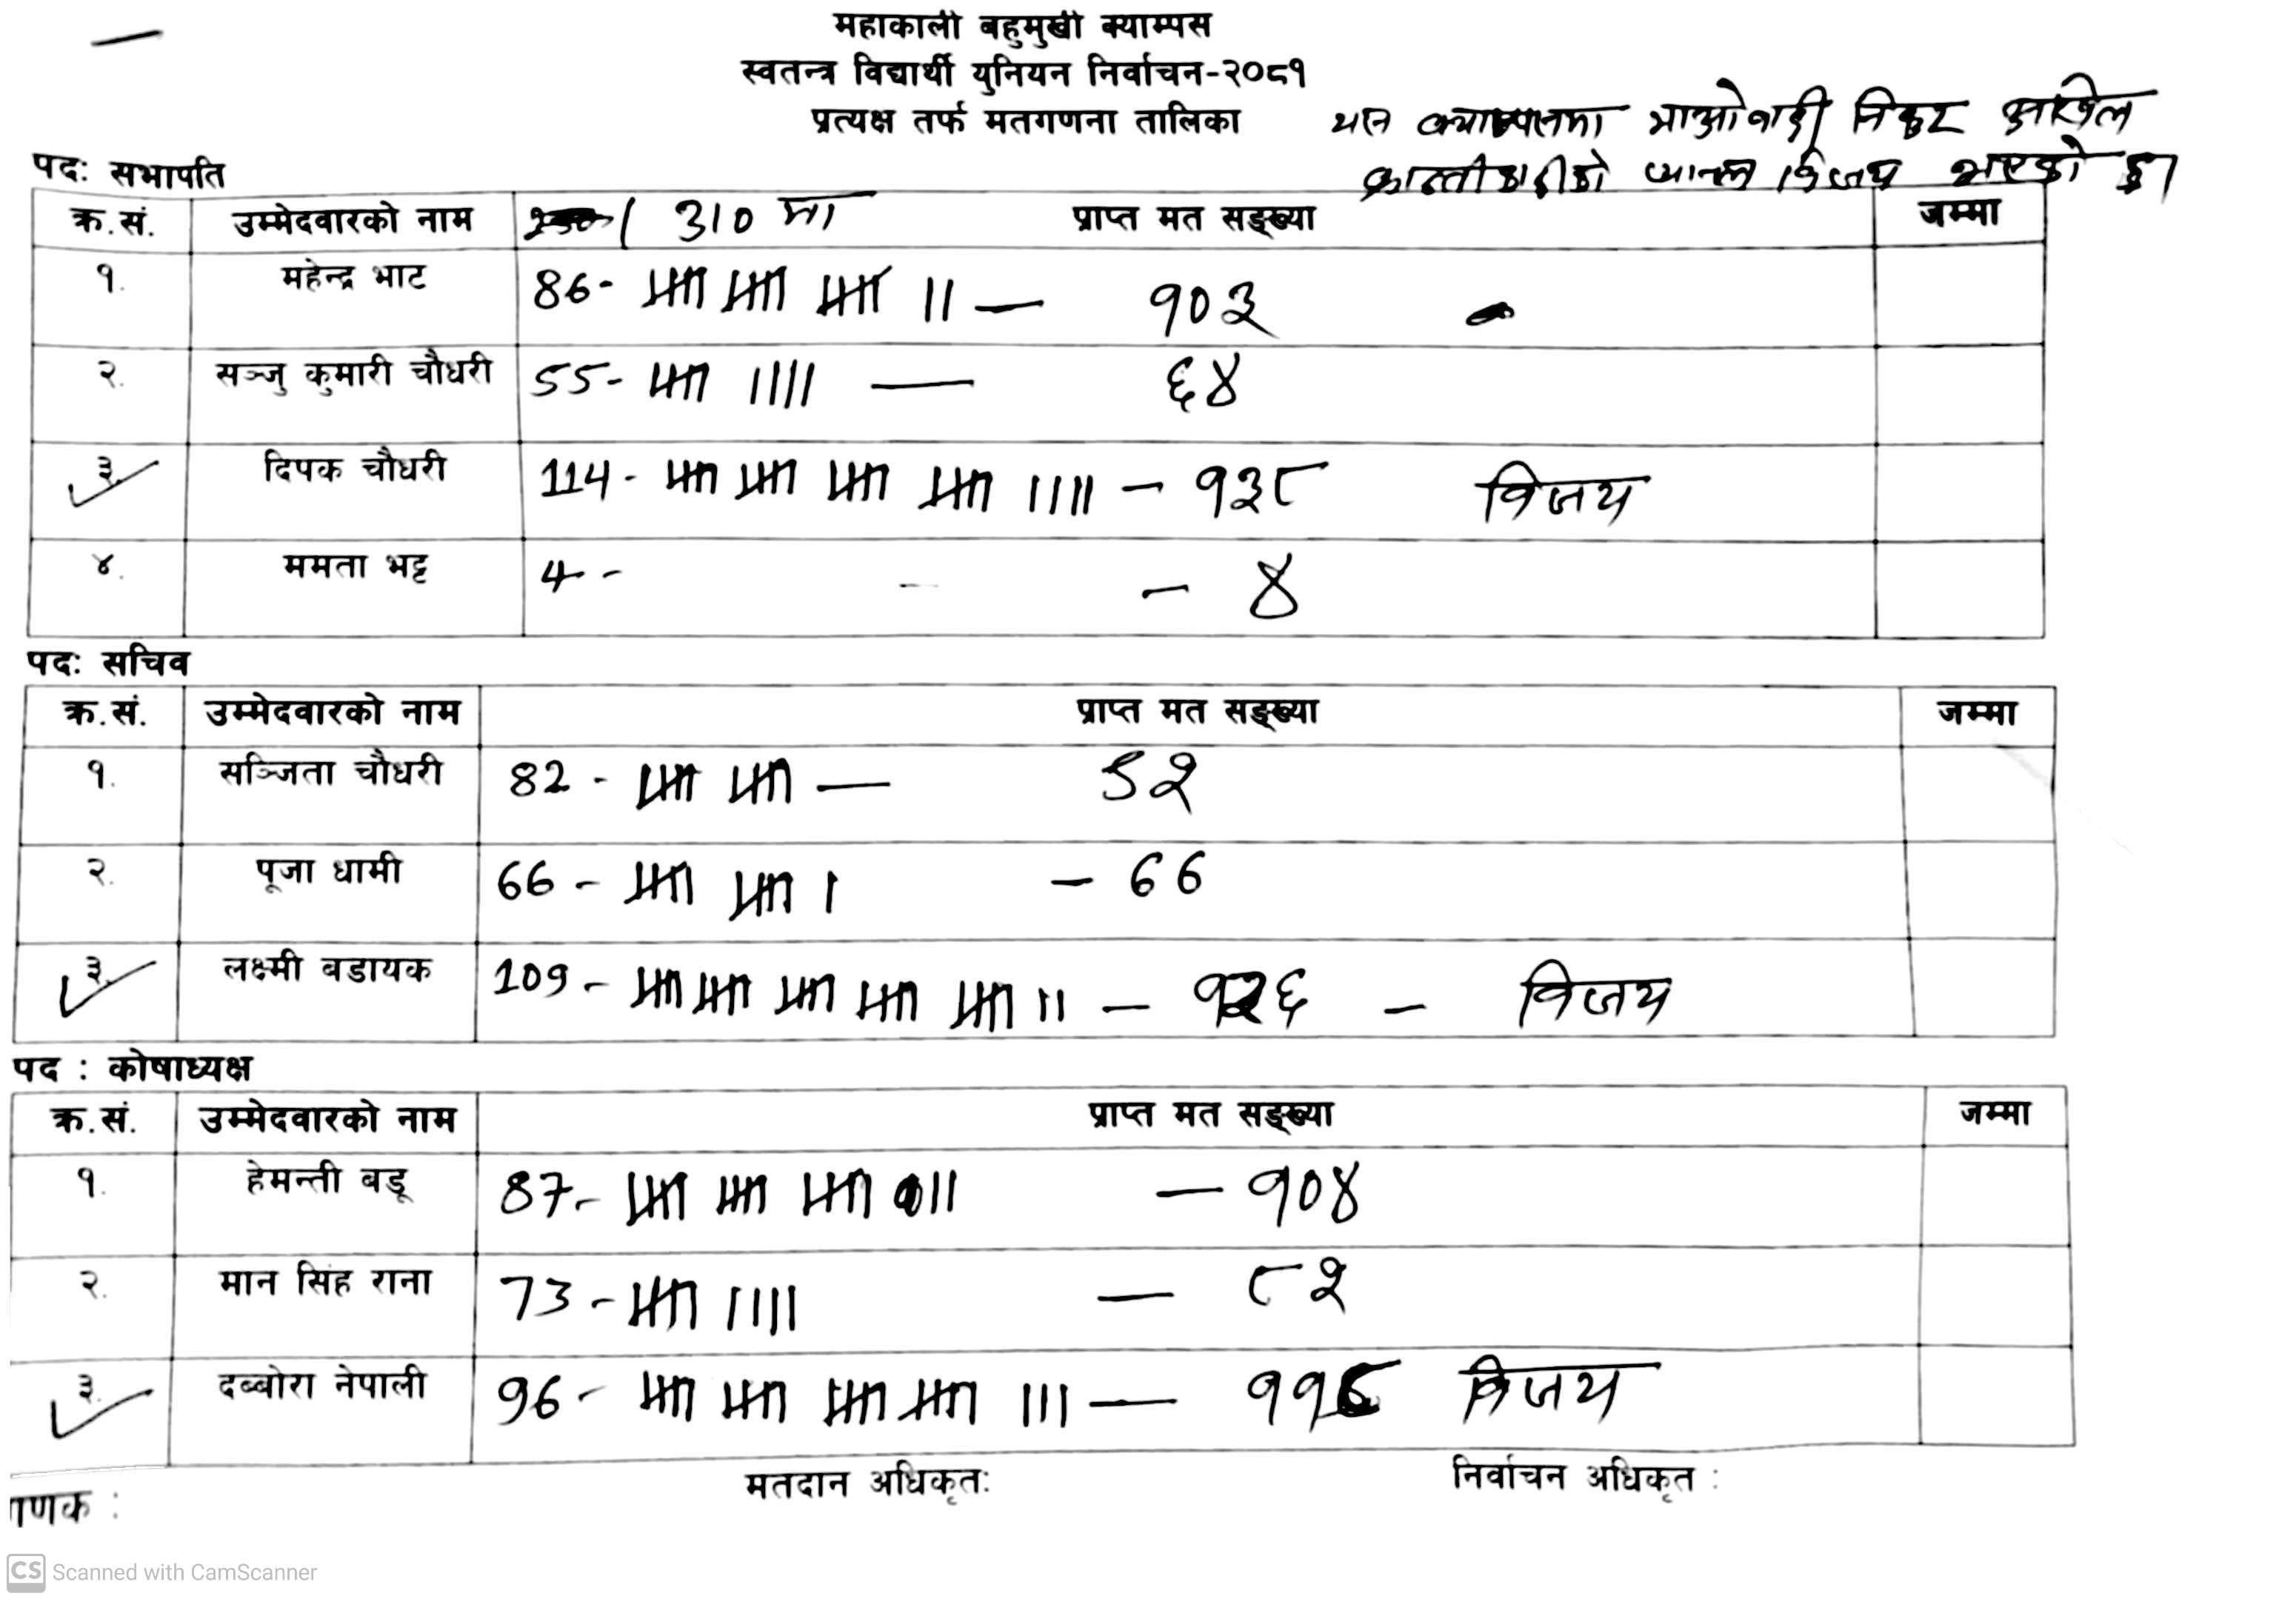 महाकाली बहुमुखी क्याम्पस
स्वतन्त्र विद्यार्थी युनियन निर्वाचन-२०८१
प्रत्यक्ष तर्फ मतगणना तालिका
यस क्याम्पसमा माओवादी निकट अखिल
क्रान्तीकारीको प्यानल विजय भएको छ।
पदः सभापति
क्र.सं. उम्मेदवारको नाम 310 मा प्राप्त मत सङ्ख्या जम्मा
१. महेन्द्र भाट 86- 卌 卌 卌 || — १०३
२. सञ्जु कुमारी चौधरी 55- 卌 |||| — ६४
३. दिपक चौधरी 114- 卌 卌 卌 卌 |||| – १३८ विजय
४. ममता भट्ट 4- - - ४
पदः सचिव
क्र.सं. उम्मेदवारको नाम प्राप्त मत सङ्ख्या जम्मा
१. सञ्जिता चौधरी 82 - 卌 卌 — ९२
२. पूजा धामी 66 - 卌 卌 | - 66
३. लक्ष्मी बडायक 109 - 卌 卌 卌 卌 卌 || – १२६ – विजय
पद : कोषाध्यक्ष
क्र.सं. उम्मेदवारको नाम प्राप्त मत सङ्ख्या जम्मा
१. हेमन्ती बडू 87- 卌 卌 卌 || — १०४
२. मान सिंह राना 73 - 卌 |||| — ८२
३. दब्बोरा नेपाली 96 - 卌 卌 卌 卌 ||| — ११९ विजय
मतदान अधिकृत: निर्वाचन अधिकृत :
गणक :
CS Scanned with CamScanner